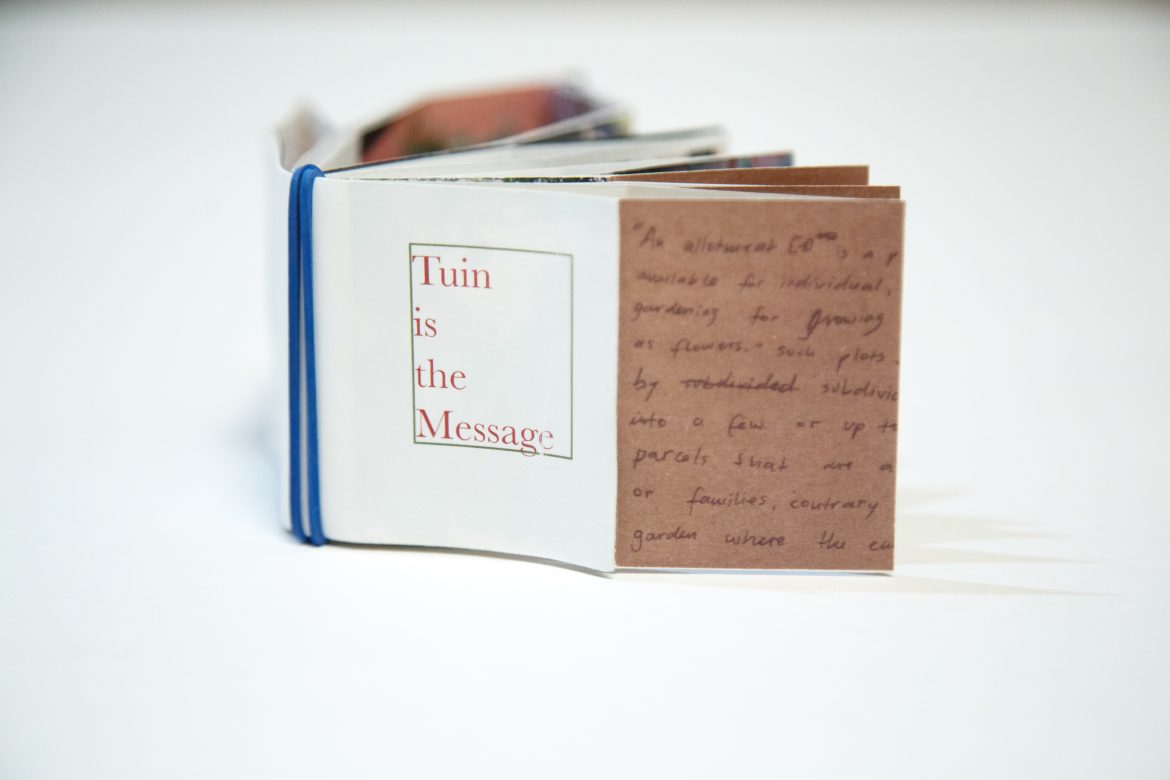 Tuin
is
the
Message
"An allotment is a
available for individual,
gardening for growing
as flowers." such plots
by subdivided subdivid
into a few or up t
parcels that are a
or families, contrary
garden where the en